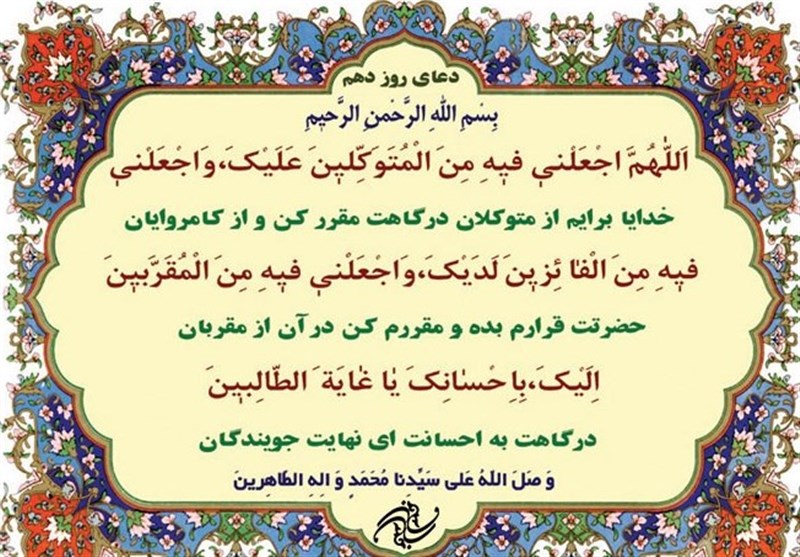 دعای روز دهم
بِسْمِ اللهِ الرَّحْمنِ الرَّحیمِ
اَللّهُمَّ اجْعَلْني فیهِ مِنَ الْمُتَوَکِّلینَ عَلَیْکَ،وَاجْعَلْني
خدایا برایم از متوکلان درگاهت مقرر کن و از کامروایان
فیهِ مِنَ الْفاٰ ئِزینَ لَدَیْکَ،وَاجْعَلْني فیهِ مِنَ الْمُقَرَّبینَ
حضرتت قرارم بده و مقررم کن درآن از مقربان
اِلَیْکَ،بِاِحْساٰنِکَ یاٰ غاٰیَةَ الطّالِبینَ
درگاهت به احسانت ای نهایت جویندگان
وَ صَلَ اللّهُ عَلی سَیِّدِنا مُحَمَدٍ وَ الِهِ الطّاهِرینَ